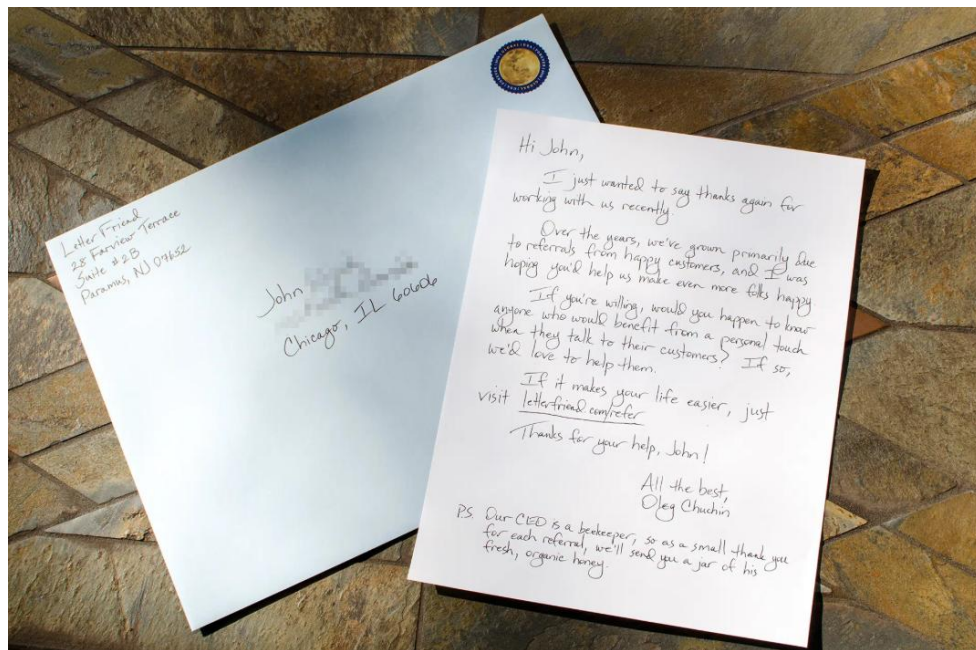 Letter Friend
28 Farview Terrace
Suite #2B
Paramus, NJ 07652
John
Chicago, IL 60606
Hi John,
I just wanted to say thanks again for
working with us recently.
Over the years, we've grown primarily due
to referrals from happy customers, and I was
hoping you'd help us make even more folks happy
If you're willing, would you happen to know
anyone who would benefit from a personal touch
when they talk to their customers? If so,
we'd love to help them.
If it makes your life easier, just
visit letterfriend.com/refer
Thanks for your help, John!
All the best,
Oleg Chuchin
PS. Our CEO is a beekeeper, so as a small thank you
for each referral, we'll send you a jar of his
fresh, organic honey.